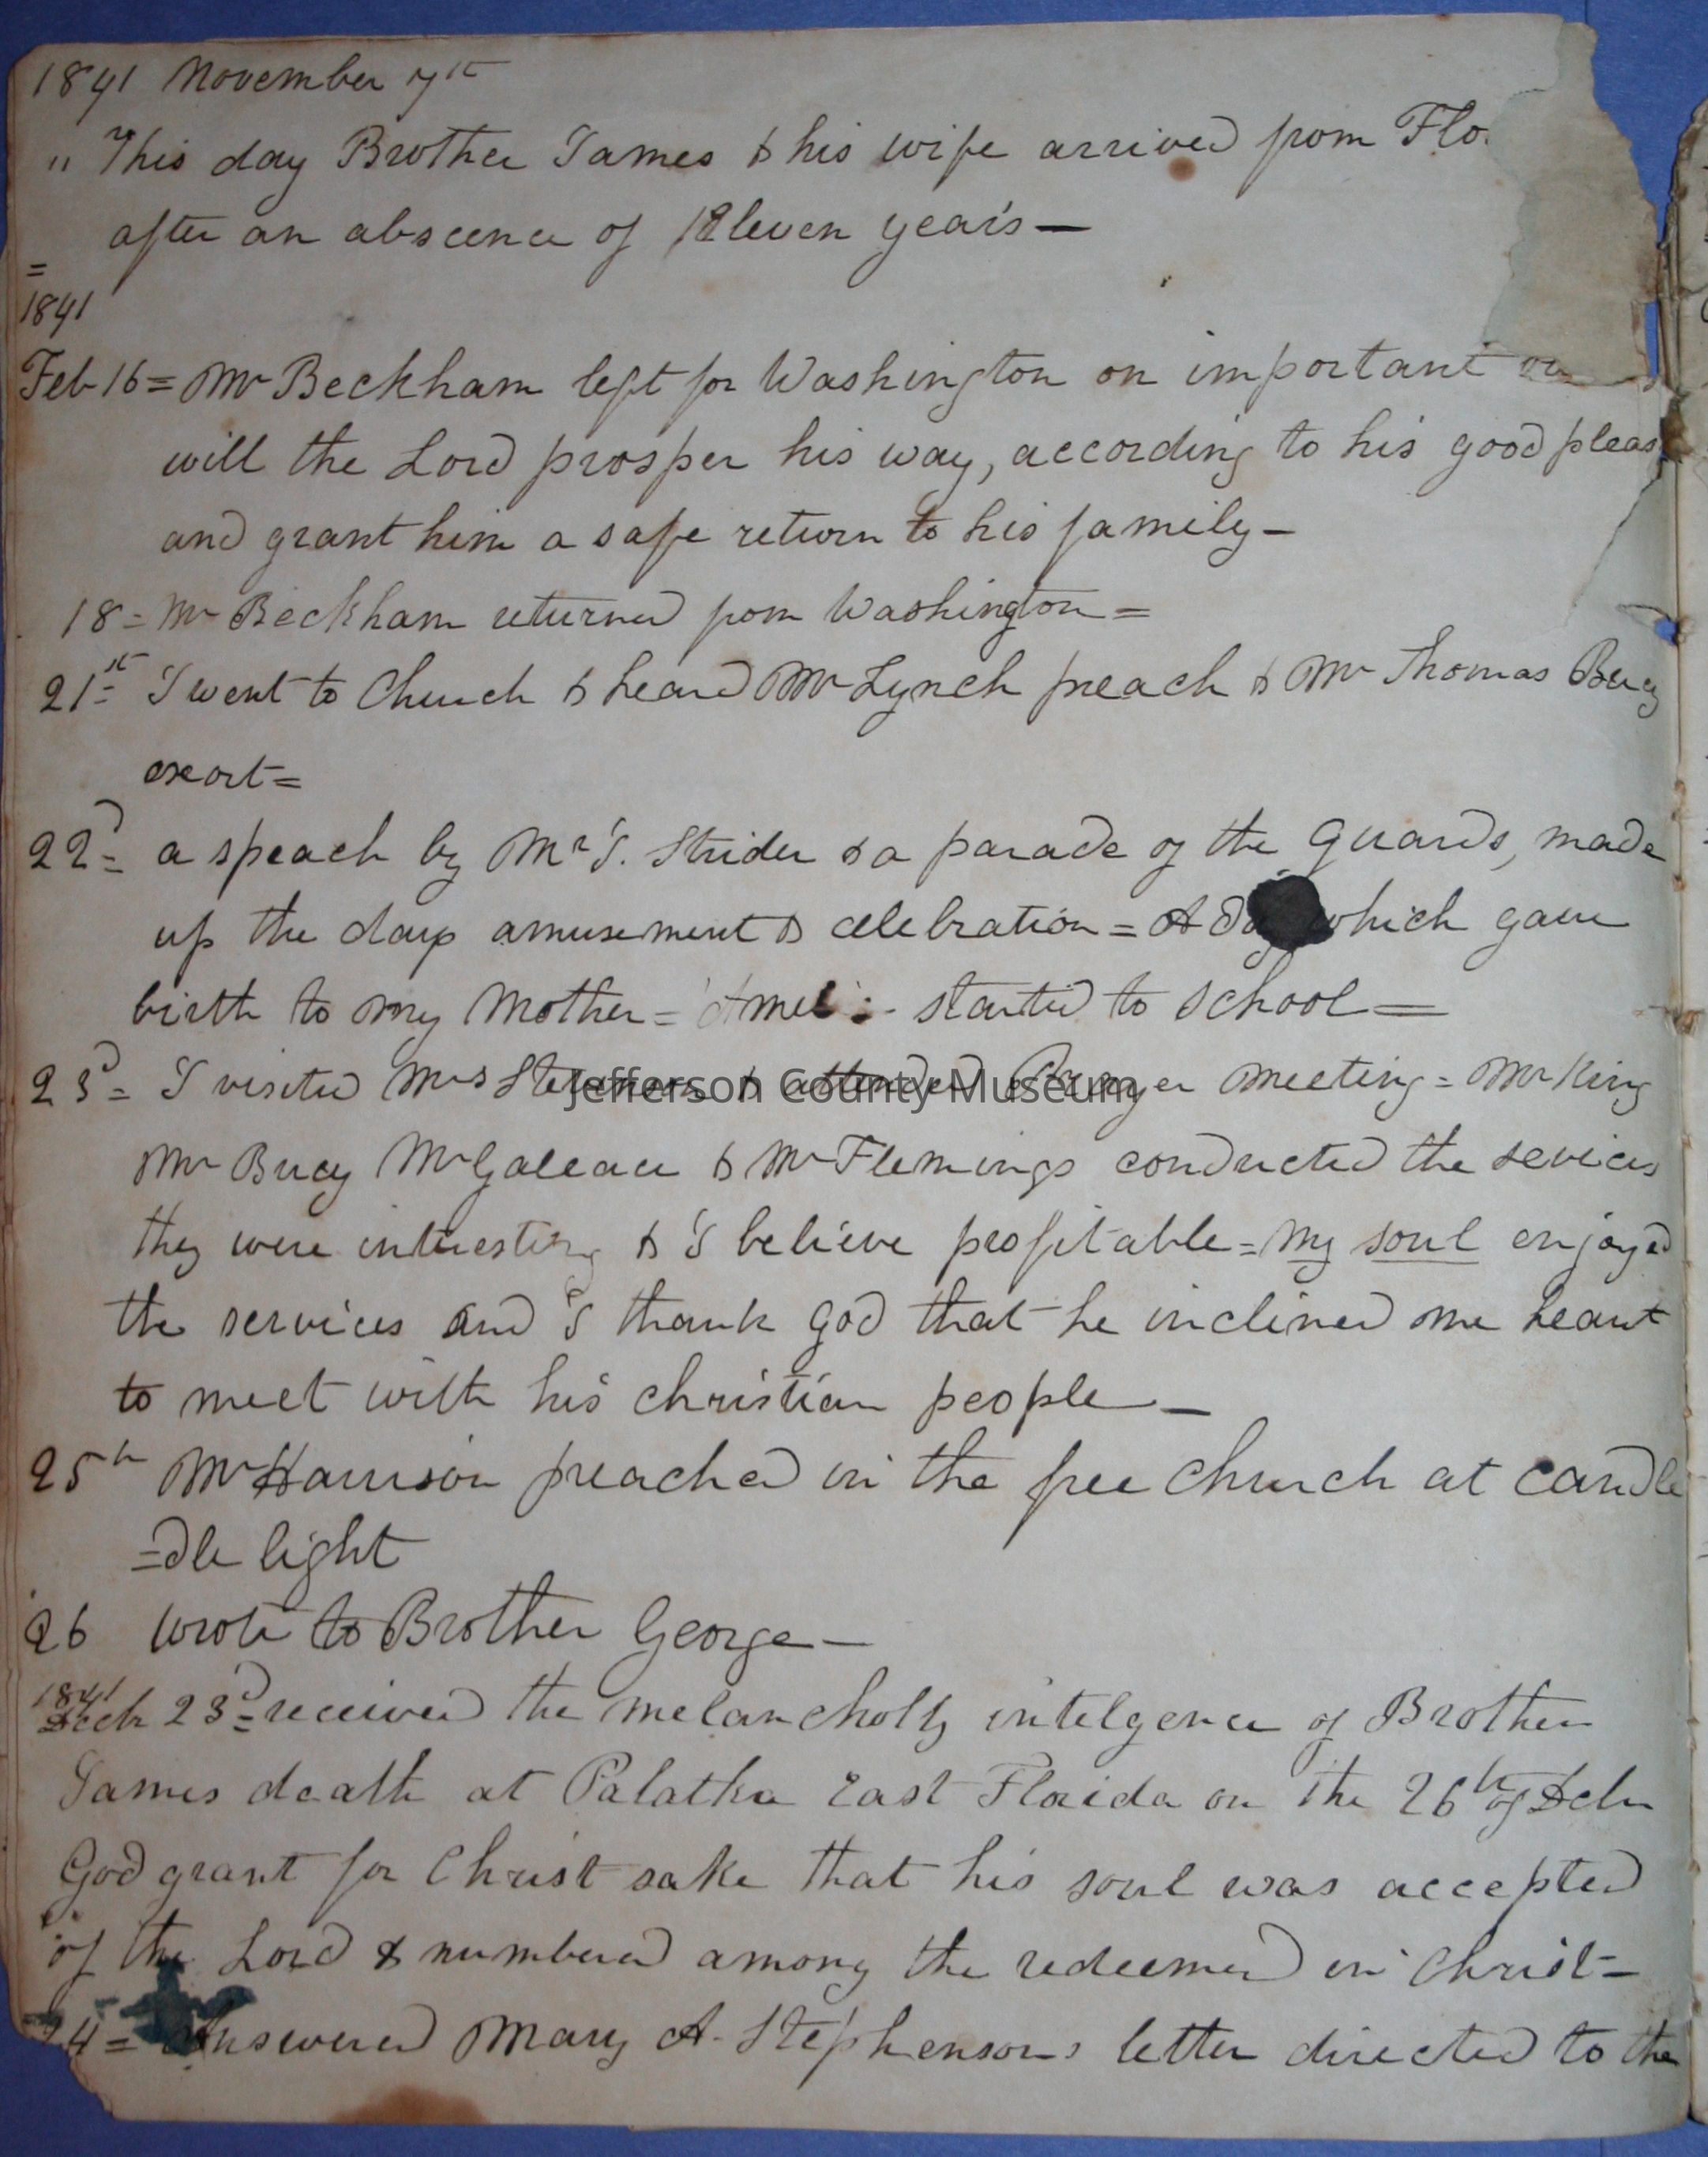 1841 November 7th
" This day Brother James & his wife arrived from Flo.
after an abscence of Eleven years —
=
1841
Feb 16 = Mr Beckham left for Washington on important
will the Lord prosper his way, according to his good pleas
and grant him a safe return to his family —
18 = Mr Beckham returned from Washington =
21st = I went to Church & heard Mr Lynch preach & Mr Thomas Bucy
exort =
22d = a speach by Mr J. Strider & a parade of the Guards, made
up the days amusement & celebration = A day which gave
birth to my Mother = started to school =
23d = I visited Mrs Stephenson & attended Prayer meeting = Mr King
Mr Bucy Mr & Mr Flemings conducted the sevices
they were interesting & I believe profitable = my soul enjoyed
the services and I thank God that he inclined me heart
to meet with his christian people —
25th Mr Harrison preached in the free Church at candle
=dle light
26 wrote to Brother George —
1841
Decbr 23d = received the melancholly intelgence of Brother
James death at Palatka East Florida on the 26th of Debr
God grant for Christ sake that his soul was accepted
of the Lord & numbered among the redeemed in Christ =
24 = Answered Mary A. Stephensons letter directed to the
Jefferson County Museum